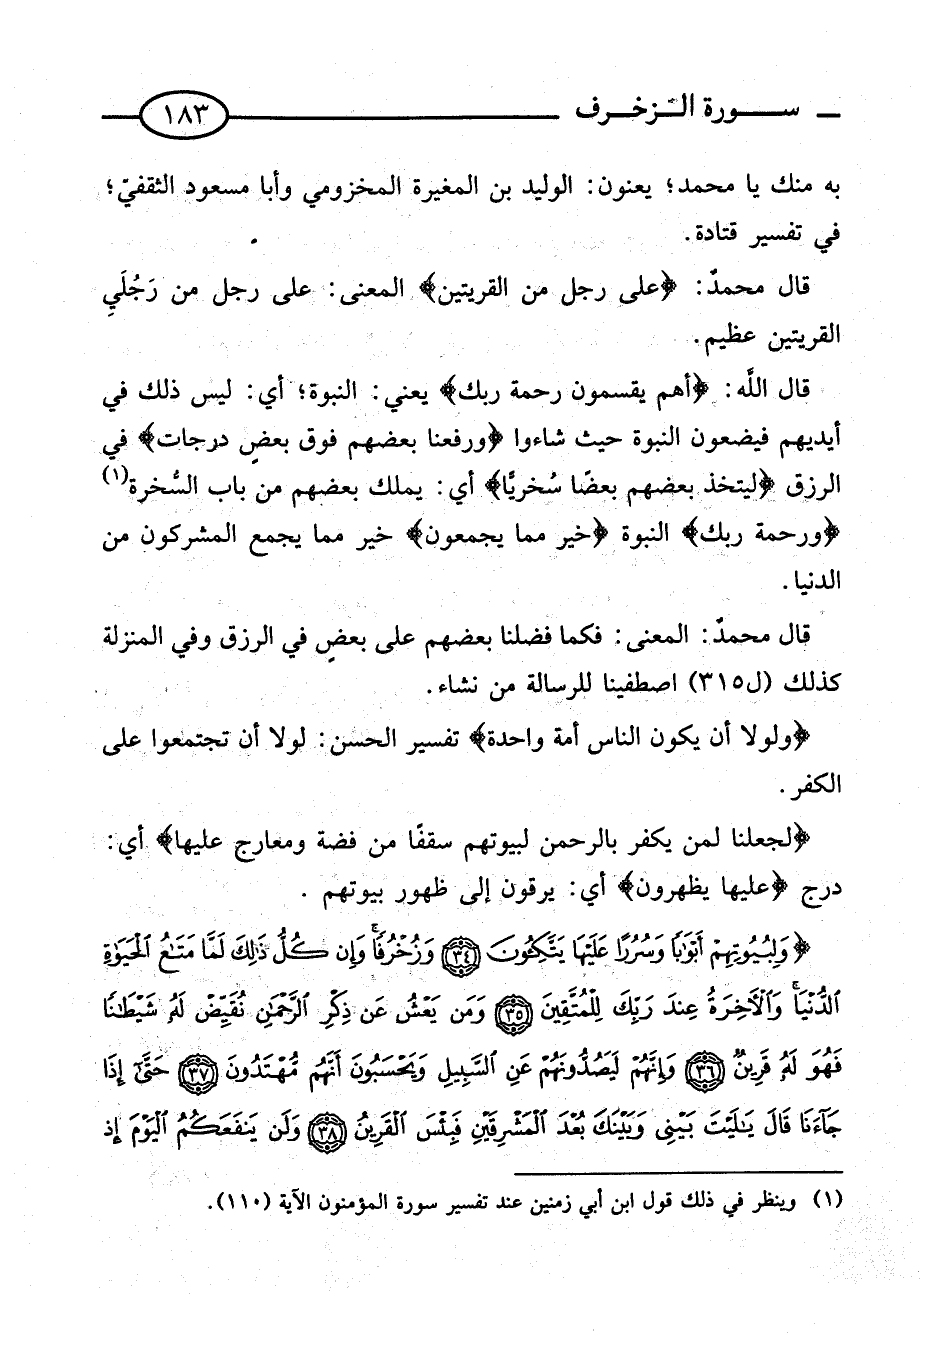 سورة الزخرف ١٨٣
به منك يا محمد؛ يعنون: الوليد بن المغيرة المخزومي وأبا مسعود الثقفيّ؛
في تفسير قتادة.
قال محمدٌ: ﴿على رجل من القريتين﴾ المعنى: على رجل من رَجُلَي
القريتين عظيم.
قال اللَّه: ﴿أهم يقسمون رحمة ربك﴾ يعني: النبوة؛ أي: ليس ذلك في
أيديهم فيضعون النبوة حيث شاءوا ﴿ورفعنا بعضهم فوق بعضٍ درجات﴾ في
الرزق ﴿ليتخذ بعضهم بعضًا سُخريًّا﴾ أي: يملك بعضهم من باب السُّخرة(١)
﴿ورحمة ربك﴾ النبوة ﴿خير مما يجمعون﴾ خير مما يجمع المشركون من
الدنيا.
قال محمدٌ: المعنى: فكما فضلنا بعضهم على بعضٍ في الرزق وفي المنزلة
كذلك (ل٣١٥) اصطفينا للرسالة من نشاء.
﴿ولولا أن يكون الناس أمة واحدة﴾ تفسير الحسن: لولا أن تجتمعوا على
الكفر.
﴿لجعلنا لمن يكفر بالرحمن لبيوتهم سقفًا من فضة ومعارج عليها﴾ أي:
درج ﴿عليها يظهرون﴾ أي: يرقون إلى ظهور بيوتهم .
﴿وَلِبُيُوتِهِمْ أَبْوَٰبًا وَسُرُرًا عَلَيْهَا يَتَّكِـُٔونَ ٣٤ وَزُخْرُفًا ۚ وَإِن كُلُّ ذَٰلِكَ لَمَّا مَتَـٰعُ ٱلْحَيَوٰةِ
ٱلدُّنْيَا ۚ وَٱلْـَٔاخِرَةُ عِندَ رَبِّكَ لِلْمُتَّقِينَ ٣٥ وَمَن يَعْشُ عَن ذِكْرِ ٱلرَّحْمَـٰنِ نُقَيِّضْ لَهُۥ شَيْطَـٰنًا
فَهُوَ لَهُۥ قَرِينٌ ٣٦ وَإِنَّهُمْ لَيَصُدُّونَهُمْ عَنِ ٱلسَّبِيلِ وَيَحْسَبُونَ أَنَّهُم مُّهْتَدُونَ ٣٧ حَتَّىٰٓ إِذَا
جَآءَنَا قَالَ يَـٰلَيْتَ بَيْنِى وَبَيْنَكَ بُعْدَ ٱلْمَشْرِقَيْنِ فَبِئْسَ ٱلْقَرِينُ ٣٨ وَلَن يَنفَعَكُمُ ٱلْيَوْمَ إِذ
(١) وينظر في ذلك قول ابن أبي زمنين عند تفسير سورة المؤمنون الآية (١١٠).